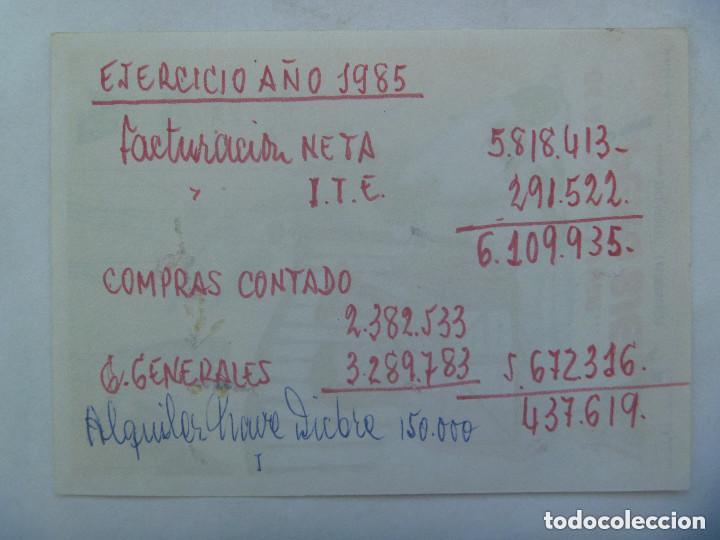 EJERCICIO AÑO 1985
Facturación NETA 5.818.413-
" I.T.E. 291.522.
6.109.935-
COMPRAS CONTADO
2.382.533
G. GENERALES 3.289.783 5.672316.
437.619.
Alquiler Nave Dicbre 150.000
I
todocoleccion